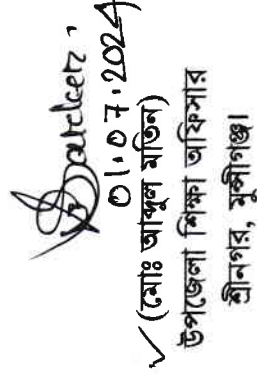 Sarcker
01.07.2024
(মোঃ আব্দুল মতিন)
উপজেলা শিক্ষা অফিসার
শ্রীনগর, মুন্সীগঞ্জ।